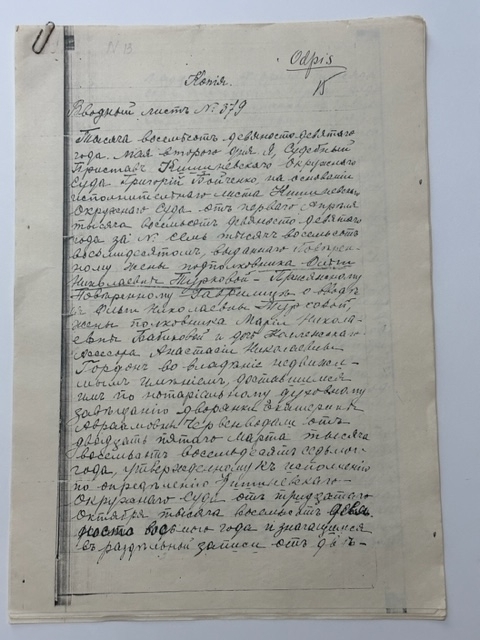 N 13
Odpis
15
Копія.
Вводный листъ № 379
Тысяча восемьсотъ девяносто девятаго
года. Мая второго дня Я, Судебный
Приставъ Кишиневскаго Окружного
Суда Григорій Бойченко, на основаніи
исполнительнаго листа Кишиневск.
Окружного Суда отъ перваго Апрѣля
тысяча восемьсотъ девяносто девятаго
года за № семь тысячъ восемьсотъ
восьмидесятомъ, выданнаго
жены подполковника Ольги
Николаевны Турковой - Присяжному
Повѣренному Гаврилицъ о вводѣ
Ольги Николаевны Турковой,
жены полковника Маріи Никола-
евны и Коллежскаго
Асессора Анастасіи Николаевны
Гордонъ во владѣніе недвижи-
мымъ имѣніемъ, доставшимся
имъ по нотаріальному духовному
завѣщанію дворянки Екатерины
Авраамовны отъ
двадцать пятаго Марта тысяча
восемьсотъ восемьдесятъ седьмого
года, утвержденному къ исполненію
по опредѣленію Кишиневскаго
Окружного Суда отъ тридцатаго
Октября тысяча восемьсотъ девя-
носто восьмого года и значащимся
въ раздѣльной записи отъ дв